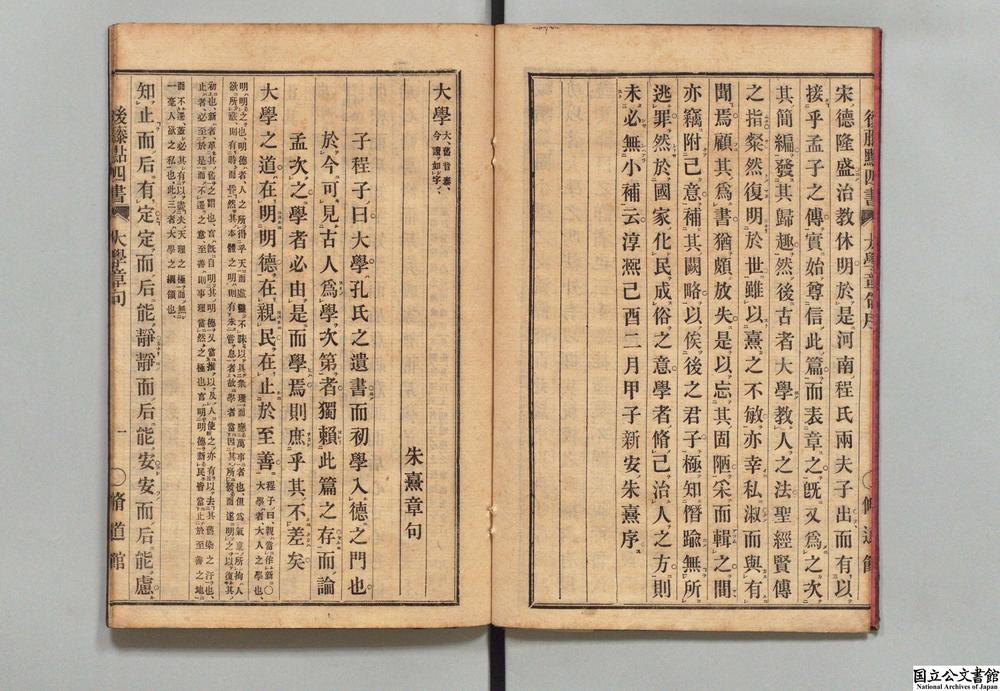 後藤點四書 大學章句序 脩道館
宋德隆盛治教休明於是河南程氏兩夫子出而有以
接乎孟子之傳實始尊信此篇而表章之旣又爲之次
其簡編發其歸趣然後古者大學教人之法聖經賢傳
之指粲然復明於世雖以熹之不敏亦幸私淑而與有
聞焉顧其爲書猶頗放失是以忘其固陋采而輯之間
亦竊附己意補其闕略以俟後之君子極知僭踰無所
逃罪然於國家化民成俗之意學者脩己治人之方則
未必無小補云淳熈己酉二月甲子新安朱熹序
朱熹章句
大學 大舊音泰
今讀如字
子程子曰大學孔氏之遺書而初學入德之門也
於今可見古人爲學次第者獨賴此篇之存而論
孟次之學者必由是而學焉則庶乎其不差矣
大學之道在明明德在親民在止於至善 程子曰親當作新○
大學者大人之學也
明明之也明德者人之所得乎天而虛靈不昧以具衆理而應萬事者也但爲氣稟所拘人
欲所蔽則有時而昏然其本體之明則有未嘗息者故學者當因其所發而遂明之以復其
初也新者革其舊之謂也言旣自明其明德又當推以及人使之亦有以去其舊染之汙也
止者必至於是而不遷之意至善則事理當然之極也言明明德新民皆當止於至善之地
而不遷蓋必其有以盡夫天理之極而無
一毫人欲之私也此三者大學之綱領也
知止而后有定定而后能靜靜而后能安安而后能慮
後藤點四書 大學章句 一 脩道館
国立公文書館
National Archives of Japan